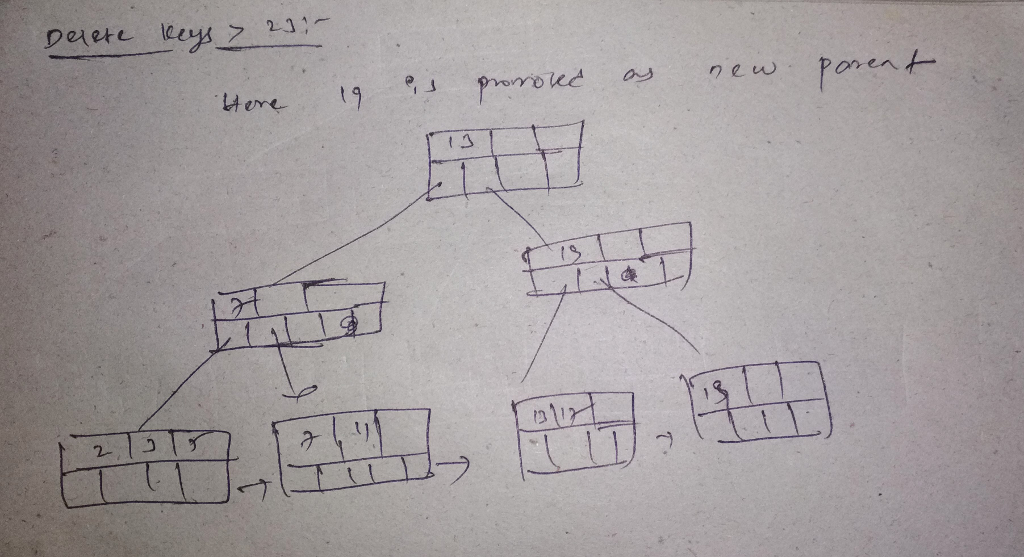 Delete Keys > 23:-
Here 19 is promoted as new parent
13
19
7
2 3 5
7 11
13 17
19